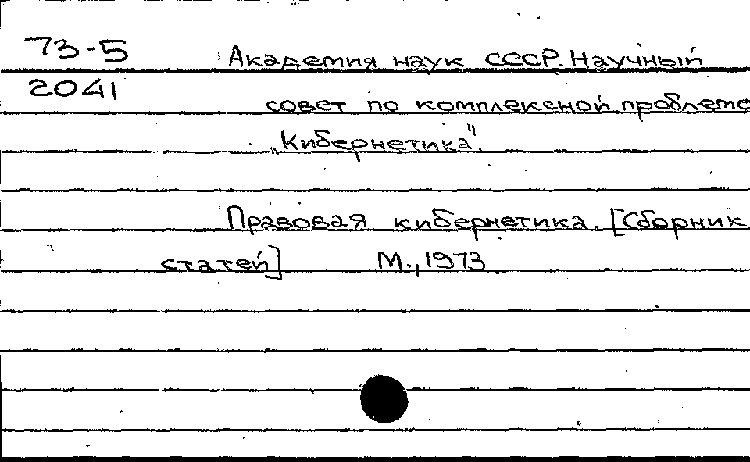 73-5 Академия наук СССР. Научный
2041 совет по комплексной проблеме
„Кибернетика".
Правовая кибернетика. [Сборник
статей] М., 1973